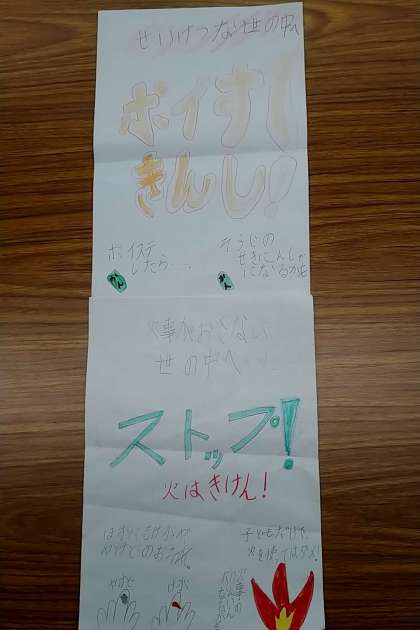 せいけつな世の中へ
ポイすて
きんし!
ポイステ
したら...
かん
そうじの
せきにんしゃ
になるかも
かん
火事がおきない
世の中へ
ストップ!
火はきけん!
やけど
けが
子どもだけで
火を使ってはダメ!